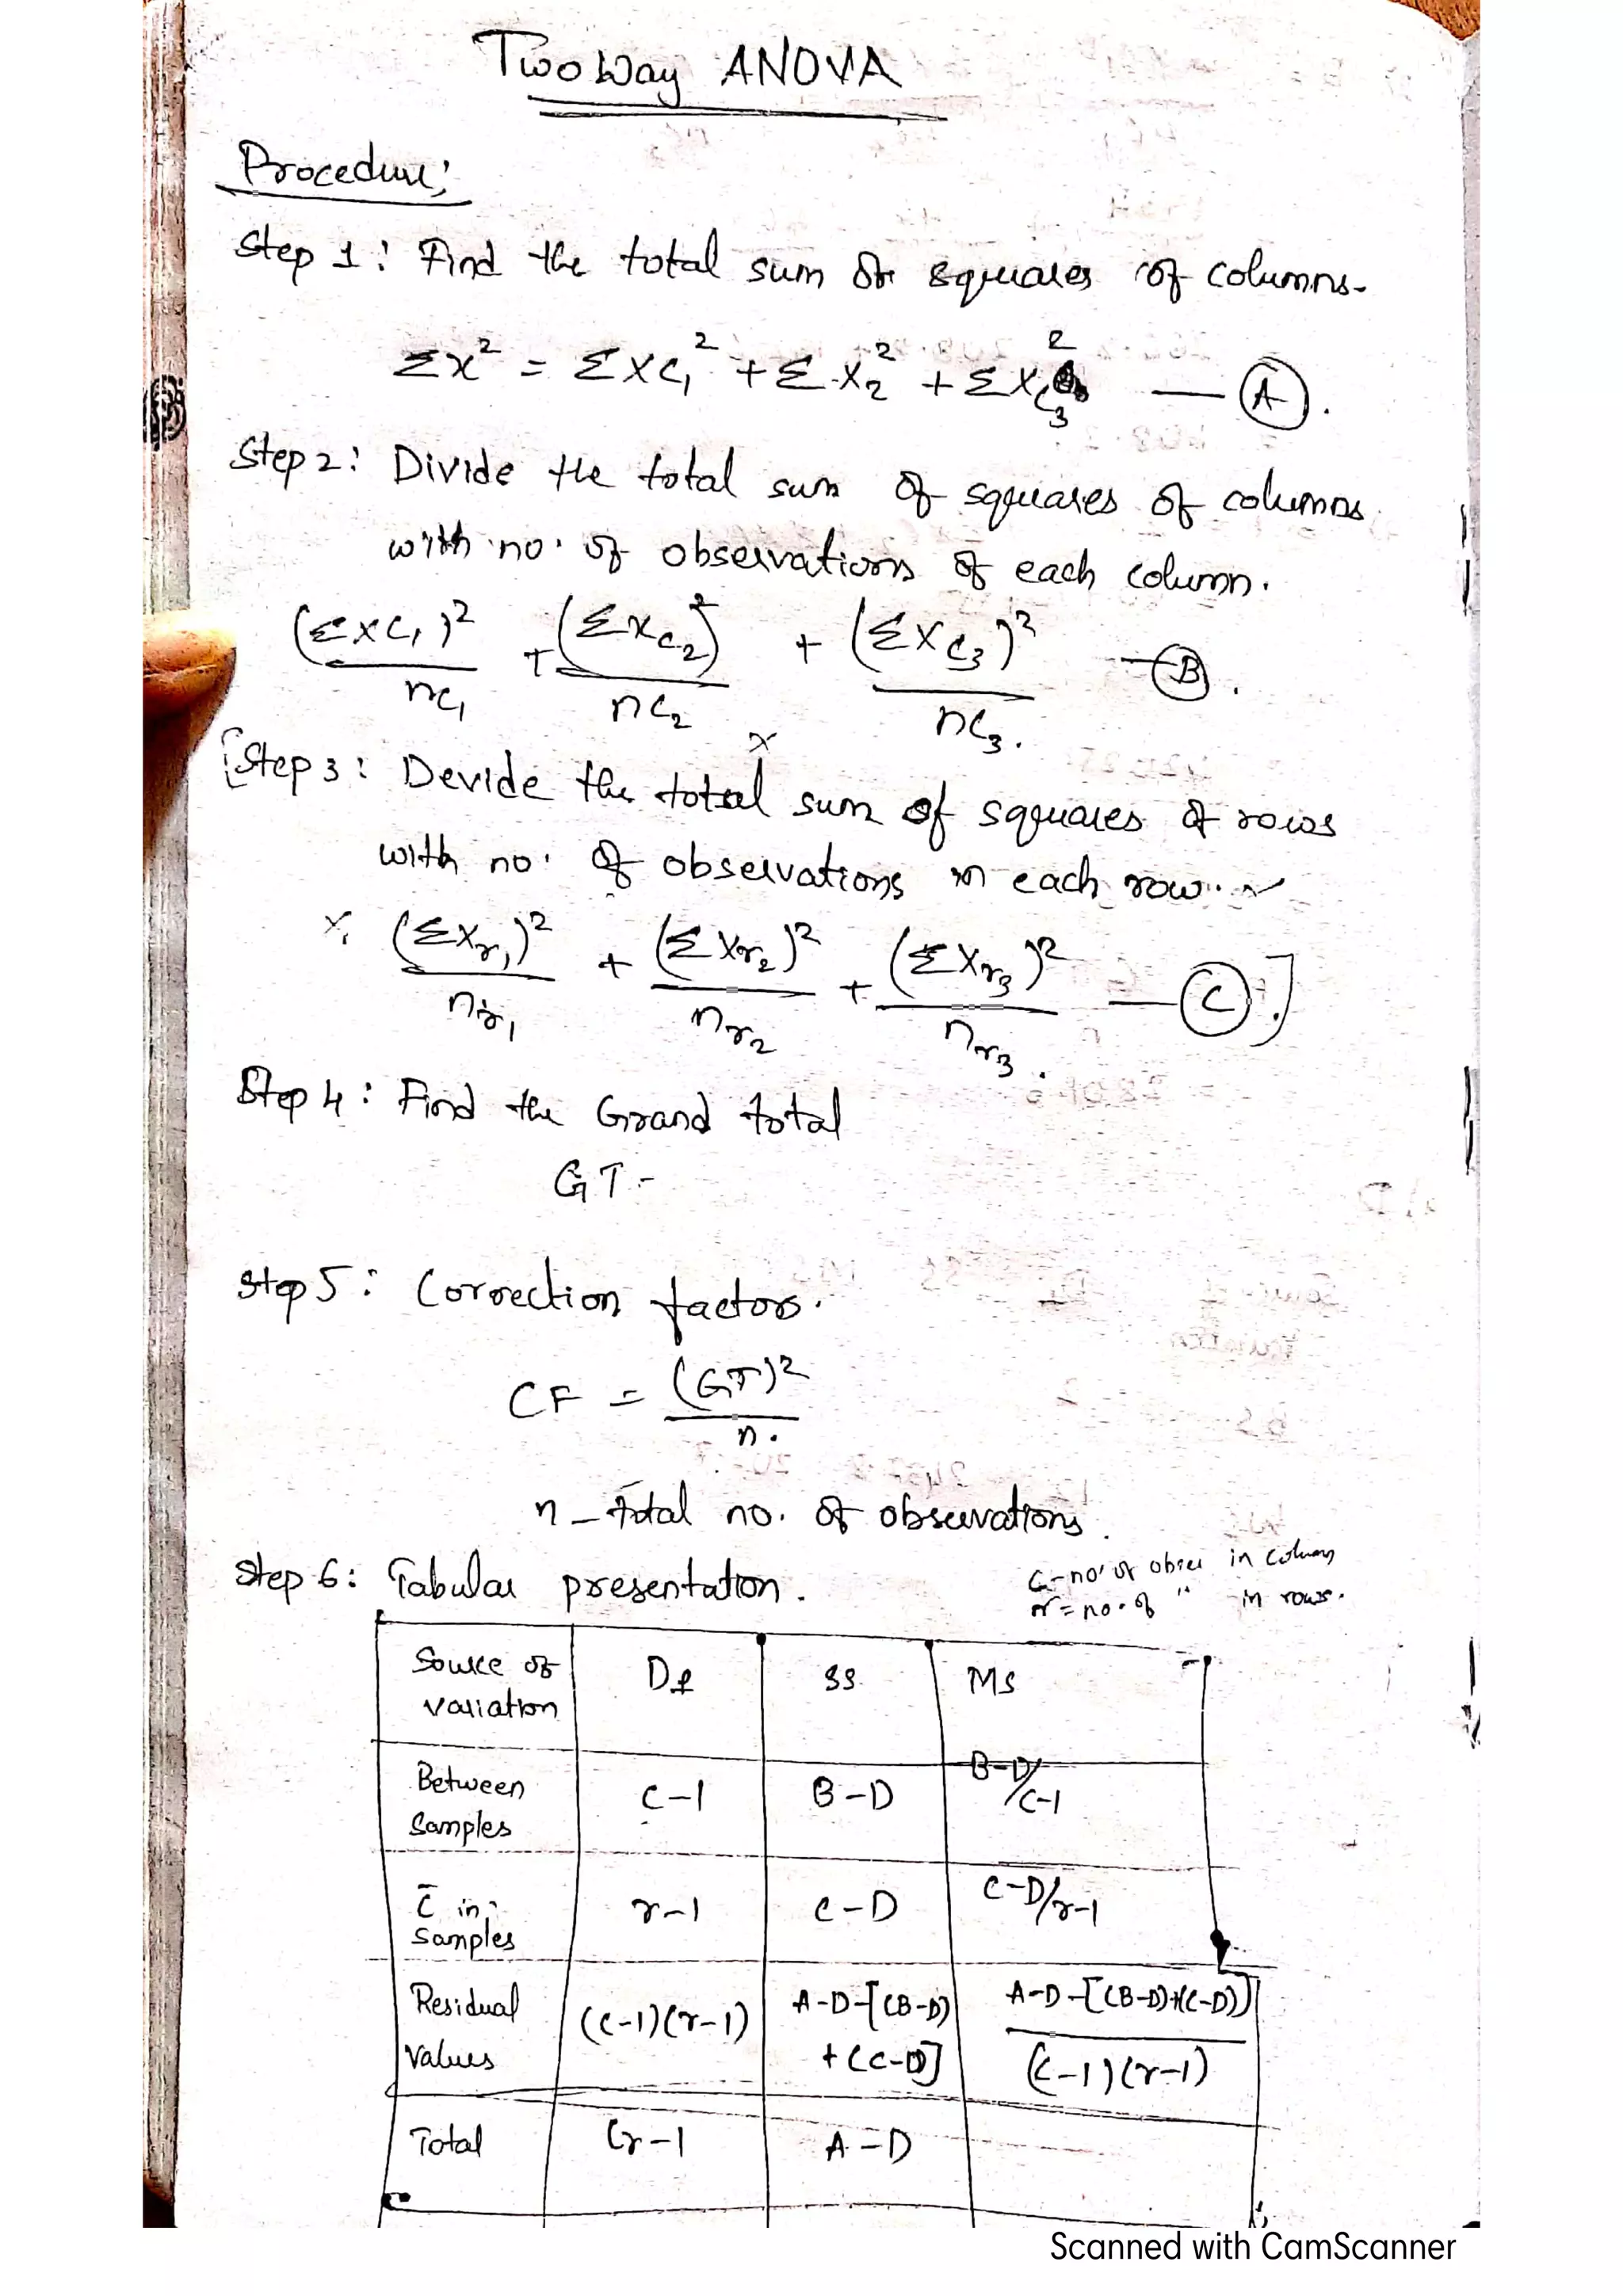 Two Way ANOVA
Procedure;
Step 1: Find the total sum of squares of columns.
Σx² = ΣXC₁² + ΣX₂² + ΣX_C₃² — (A).
Step 2: Divide the total sum of squares of columns
with no. of observations of each column.
(ΣXC₁)²/nC₁ + (ΣX_C₂)²/nC₂ + (ΣX_C₃)²/nC₃. — (B).
[Step 3: Devide the total sum of squares of rows
with no. of observations in each row.
(ΣXr₁)²/nr₁ + (ΣXr₂)²/nr₂ + (ΣXr₃)²/nr₃. — (C).]
Step 4: Find the Grand total
GT -
Step 5: Correction factors.
CF = (GT)²/n.
n - total no. of observations.
Step 6: Tabular presentation.
C - no. of obser in column
r = no. of " in rows.
Source of variation Df SS MS
Between Samples C-1 B-D B-D/C-1
C̄ in Samples r-1 C-D C-D/r-1
Residual Values (C-1)(r-1) A-D-[(B-D)+(C-D)] A-D-[(B-D)+(C-D)]/(C-1)(r-1)
Total Cr-1 A-D
Scanned with CamScanner